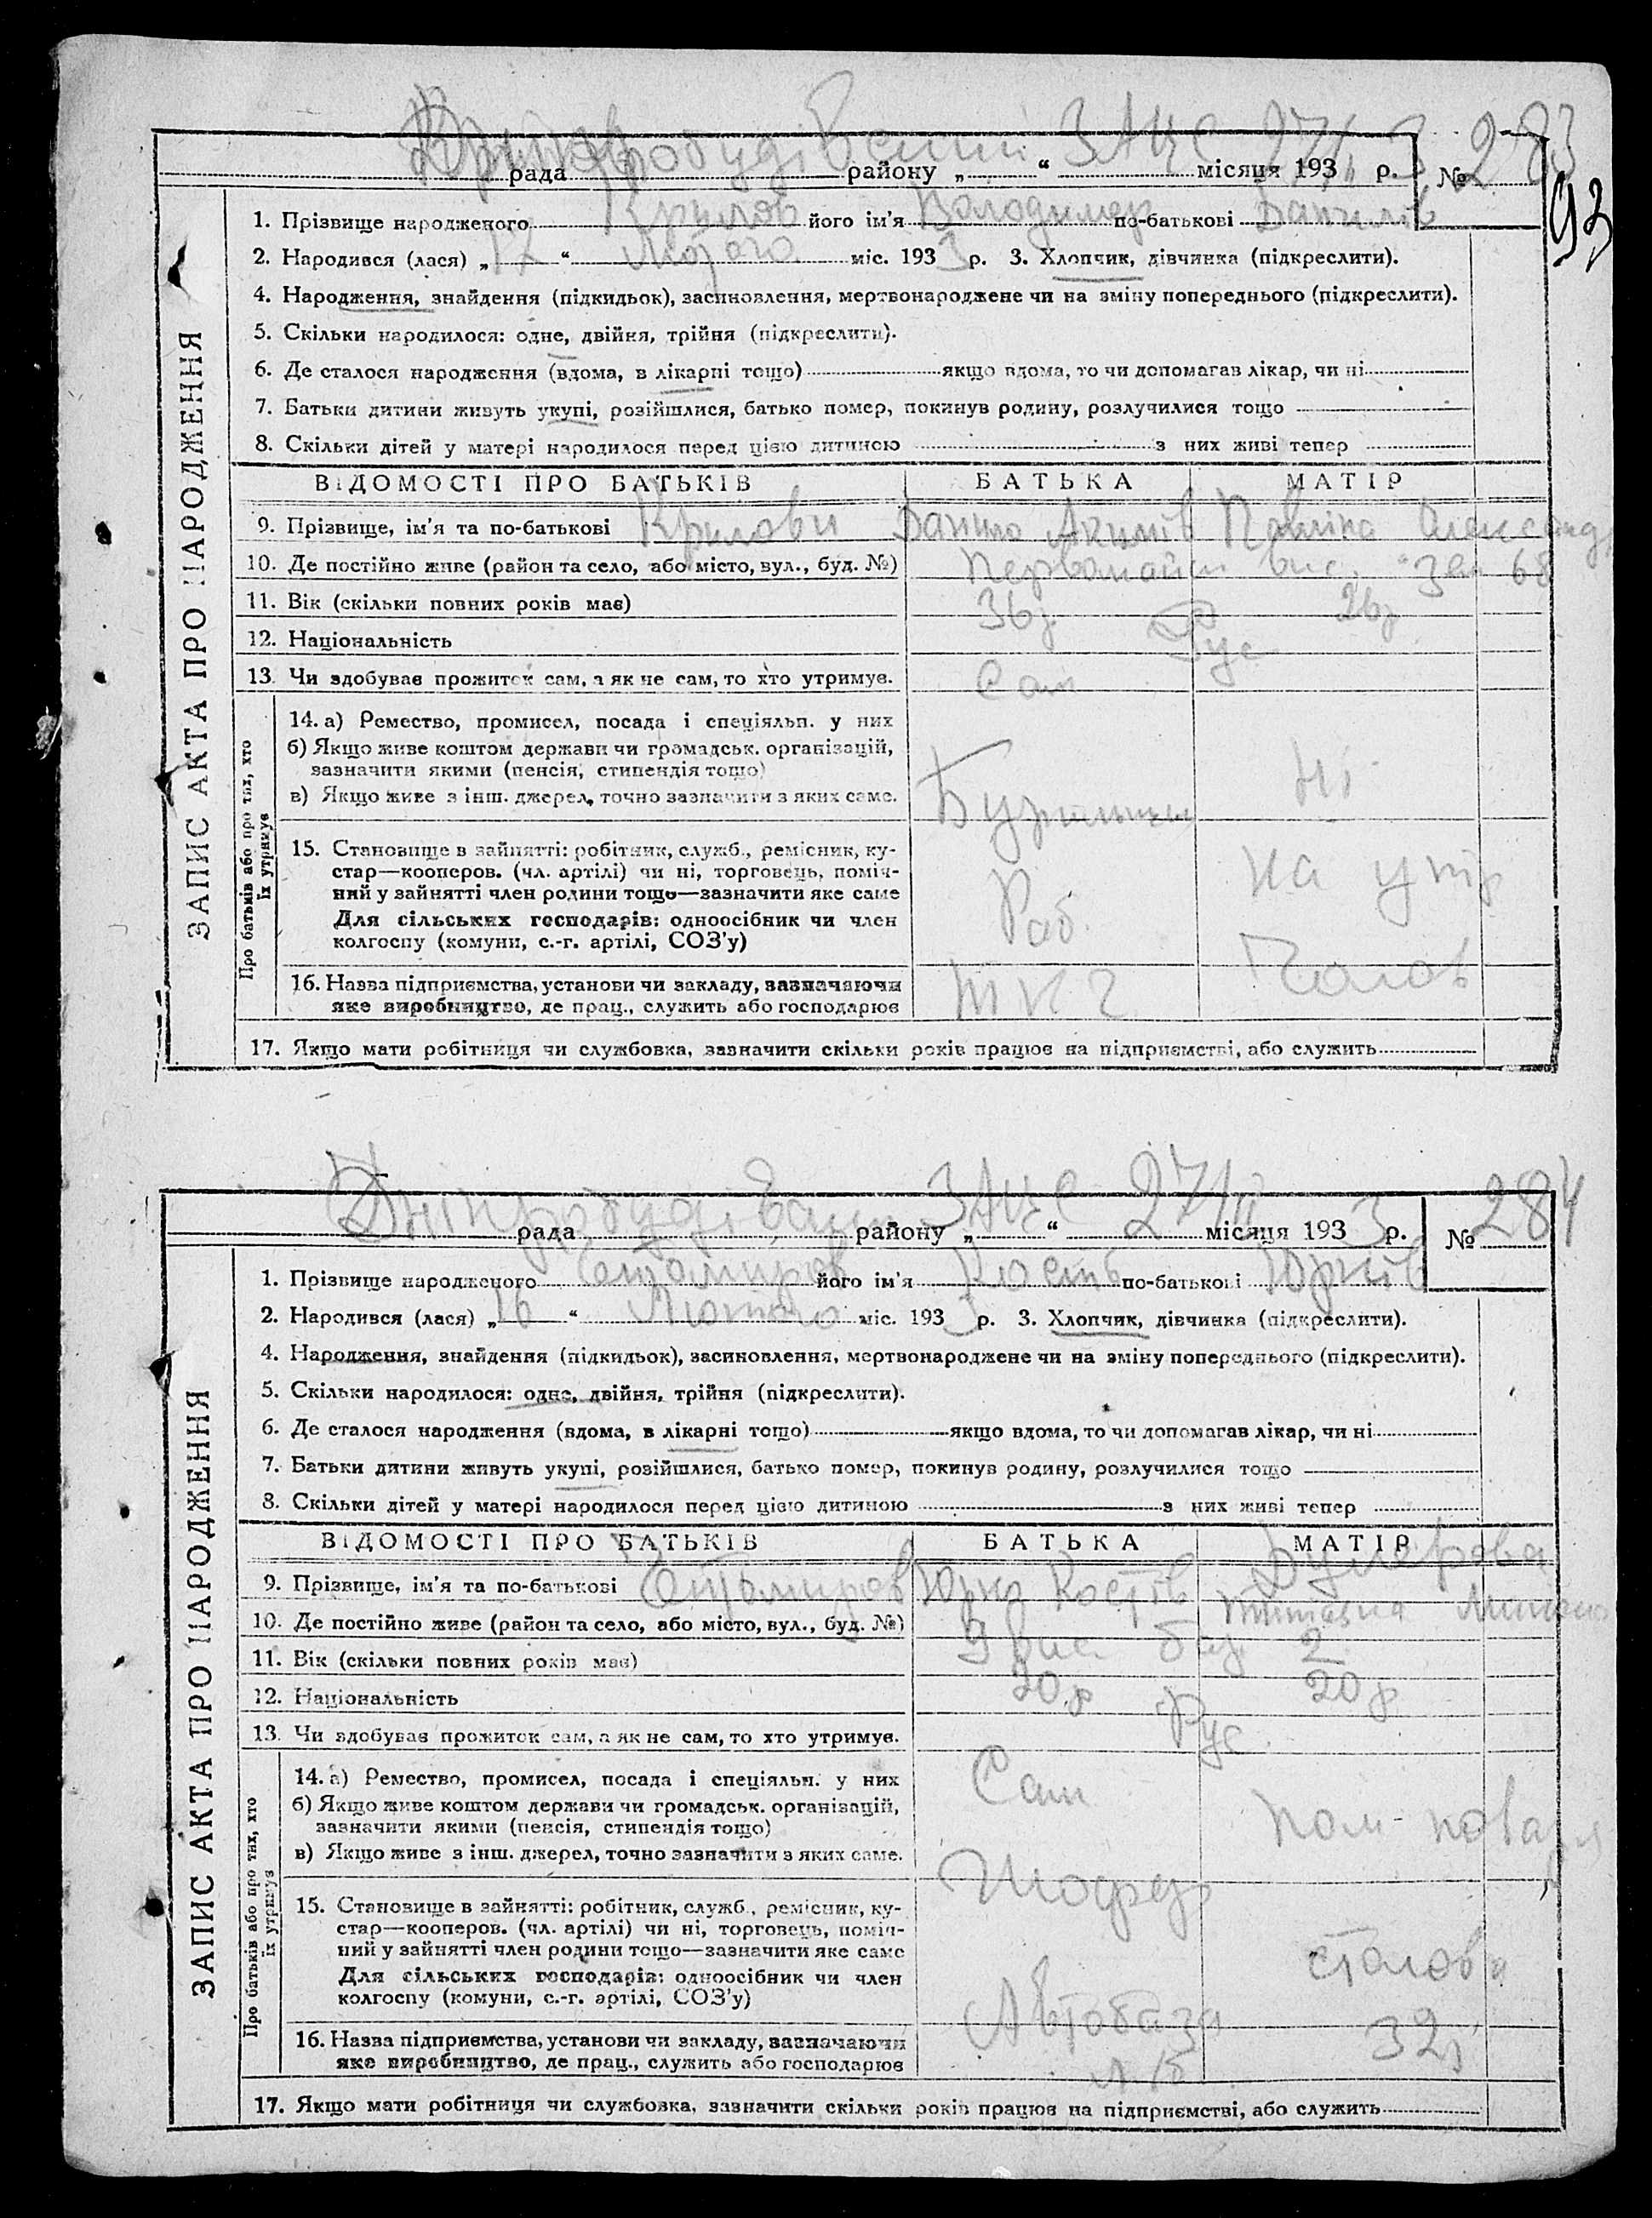 Дніпробудівський ЗАЦС 27/II 3 283
рада району „ “ місяця 193 р. №
93
ЗАПИС АКТА ПРО НАРОДЖЕННЯ
1. Прізвище народженого Крилов його ім'я Володимир по-батькові Данилів
2. Народився (лася) „17“ Лютого міс. 1933 р. 3. Хлопчик, дівчинка (підкреслити).
4. Народження, знайдення (підкидьок), засиновлення, мертвонароджене чи на зміну попереднього (підкреслити).
5. Скільки народилося: одне, двійня, трійня (підкреслити).
6. Де сталося народження (вдома, в лікарні тощо) якщо вдома, то чи допомагав лікар, чи ні
7. Батьки дитини живуть укупі, розійшлися, батько помер, покинув родину, розлучилися тощо
8. Скільки дітей у матері народилося перед цією дитиною з них живі тепер
ВІДОМОСТІ ПРО БАТЬКІВ БАТЬКА МАТІР
9. Прізвище, ім'я та по-батькові Крилови Данило Акимів Павліна Олександ
10. Де постійно живе (район та село, або місто, вул., буд. №) Первомайськ вис. 68
11. Вік (скільки повних років має) 36р 26р
12. Національність Рус
13. Чи здобуває прожиток сам, а як не сам, то хто утримує. Сам
Про батьків або про тих, хто їх утримує
14. а) Ремество, промисел, посада і спеціяльн. у них
б) Якщо живе коштом держави чи громадськ. організацій,
зазначити якими (пенсія, стипендія тощо)
в) Якщо живе з інш. джерел, точно зазначити з яких саме.
Ні
15. Становище в зайнятті: робітник, служб., ремісник, ку-
стар—кооперов. (чл. артілі) чи ні, торговець, поміч-
ний у зайнятті член родини тощо—зазначити яке саме
Для сільських господарів: одноосібник чи член
колгоспу (комуни, с.-г. артілі, СОЗ'у)
Раб. на утр
16. Назва підприємства, установи чи закладу, зазначаючи
яке виробництво, де прац., служить або господарює
Чолов
17. Якщо мати робітниця чи службовка, зазначити скільки років працює на підприємстві, або служить
Дніпробудівськ ЗАЦС 27/II 284
рада району „ “ місяця 1933 р. №
ЗАПИС АКТА ПРО НАРОДЖЕННЯ
1. Прізвище народженого його ім'я Кость по-батькові Юрків
2. Народився (лася) „16“ Лютого міс. 1933 р. 3. Хлопчик, дівчинка (підкреслити).
4. Народження, знайдення (підкидьок), засиновлення, мертвонароджене чи на зміну попереднього (підкреслити).
5. Скільки народилося: одне, двійня, трійня (підкреслити).
6. Де сталося народження (вдома, в лікарні тощо) якщо вдома, то чи допомагав лікар, чи ні
7. Батьки дитини живуть укупі, розійшлися, батько помер, покинув родину, розлучилися тощо
8. Скільки дітей у матері народилося перед цією дитиною з них живі тепер
ВІДОМОСТІ ПРО БАТЬКІВ БАТЬКА МАТІР
9. Прізвище, ім'я та по-батькові Юрко Костів
10. Де постійно живе (район та село, або місто, вул., буд. №) 9 вис. бар 2
11. Вік (скільки повних років має) 20р 20р
12. Національність Рус.
13. Чи здобуває прожиток сам, а як не сам, то хто утримує.
Сам
Про батьків або про тих, хто їх утримує
14. а) Ремество, промисел, посада і спеціяльн. у них
б) Якщо живе коштом держави чи громадськ. організацій,
зазначити якими (пенсія, стипендія тощо)
в) Якщо живе з інш. джерел, точно зазначити з яких саме.
Шофер пом-повара
15. Становище в зайнятті: робітник, служб., ремісник, ку-
стар—кооперов. (чл. артілі) чи ні, торговець, поміч-
ний у зайнятті член родини тощо—зазначити яке саме
Для сільських господарів: одноосібник чи член
колгоспу (комуни, с.-г. артілі, СОЗ'у)
Автобаза столова
16. Назва підприємства, установи чи закладу, зазначаючи
яке виробництво, де прац., служить або господарює
32
17. Якщо мати робітниця чи службовка, зазначити скільки років працює на підприємстві, або служить